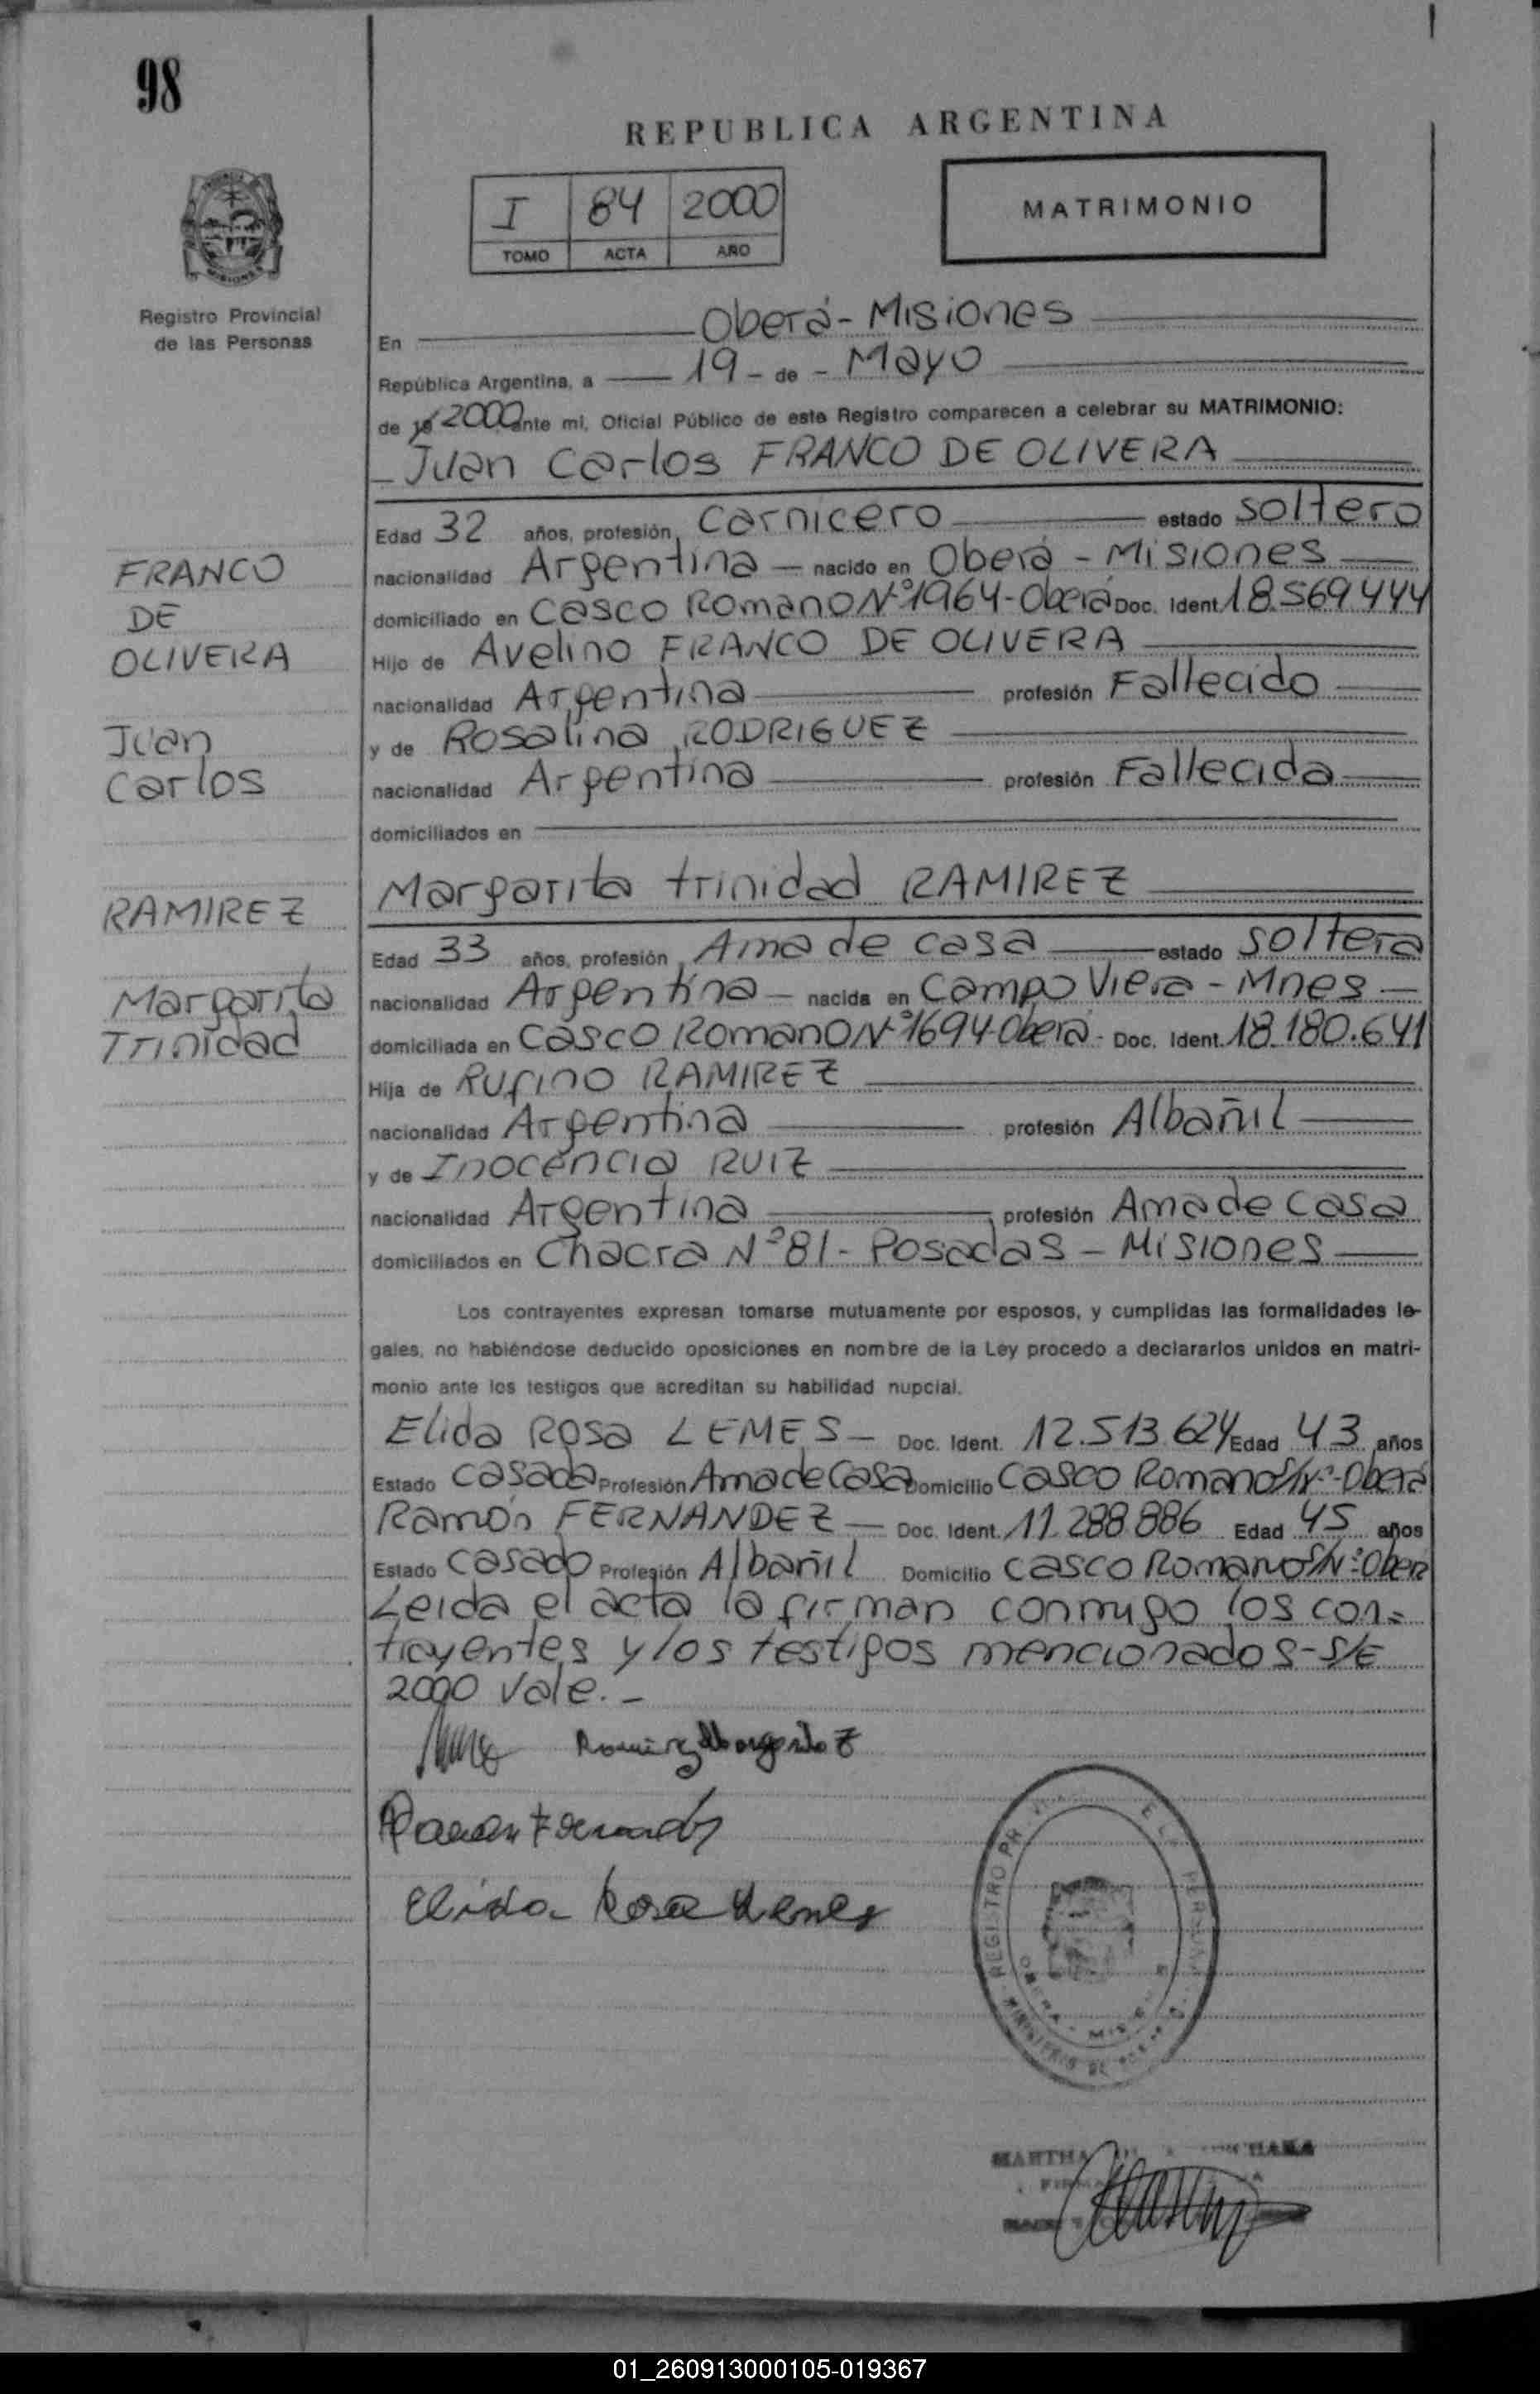 98
REPUBLICA ARGENTINA
I 84 2000
TOMO ACTA AÑO
MATRIMONIO
MISIONES
Registro Provincial
de las Personas
En Oberá - Misiones
República Argentina, a 19 - de - Mayo
de 19 2000 ante mi, Oficial Público de este Registro comparecen a celebrar su MATRIMONIO:
- Juan Carlos FRANCO DE OLIVERA
Edad 32 años, profesión Carnicero estado soltero
nacionalidad Argentina - nacido en Oberá - Misiones
domiciliado en Casco Romano Nº 1964 - Oberá Doc. Ident. 18.569.444
Hijo de Avelino FRANCO DE OLIVERA
nacionalidad Argentina profesión Fallecido
y de Rosalina RODRIGUEZ
nacionalidad Argentina profesión Fallecida
domiciliados en
FRANCO
DE
OLIVERA
Juan
Carlos
Margarita trinidad RAMIREZ
Edad 33 años, profesión Ama de casa estado soltera
nacionalidad Argentina - nacida en Campo Viera - Mnes -
domiciliada en Casco Romano Nº 1694 Oberá - Doc. Ident. 18.180.641
Hija de Rufino RAMIREZ
nacionalidad Argentina profesión Albañil
y de Inocencia RUIZ
nacionalidad Argentina profesión Ama de casa
domiciliados en Chacra Nº 81 - Posadas - Misiones
RAMIREZ
Margarita
Trinidad
Los contrayentes expresan tomarse mutuamente por esposos, y cumplidas las formalidades le-
gales, no habiéndose deducido oposiciones en nombre de la Ley procedo a declararlos unidos en matri-
monio ante los testigos que acreditan su habilidad nupcial.
Elida Rosa LEMES - Doc. Ident. 12.513.624 Edad 43 años
Estado casada Profesión Ama de Casa Domicilio Casco Romano S/Nº - Oberá
Ramón FERNANDEZ - Doc. Ident. 11.288.886 Edad 45 años
Estado casado Profesión Albañil Domicilio Casco Romano S/Nº - Oberá
Leida el acta la firman conmigo los con-
trayentes y los testigos mencionados - S/E
2000 Vale. -
Ramirez Margarita T
Ramon Fernandez
Elida Rosa Lemes
REGISTRO
OBERA - MIS
MINISTERIO DE
MARTHA
01_260913000105-019367